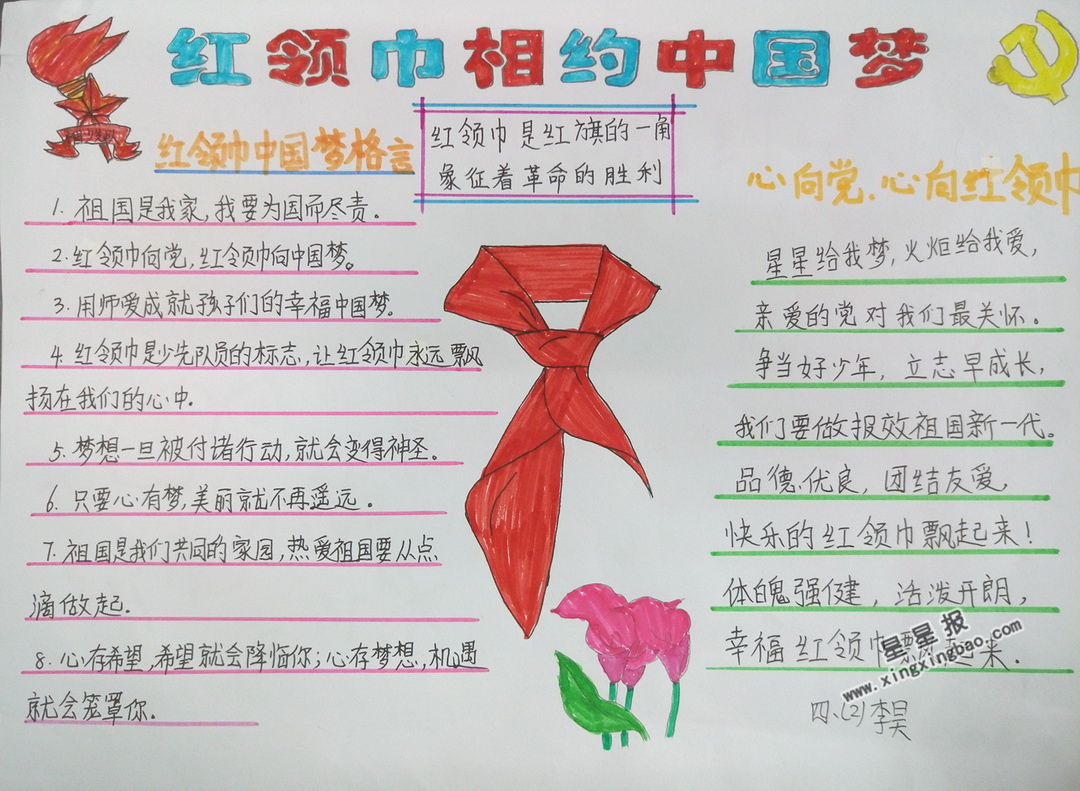 红领巾相约中国梦
红领巾中国梦格言
红领巾是红旗的一角
象征着革命的胜利
1. 祖国是我家,我要为国而尽责。
2. 红领巾向党,红领巾向中国梦。
3. 用师爱成就孩子们的幸福中国梦。
4. 红领巾是少先队员的标志,让红领巾永远飘
扬在我们的心中.
5. 梦想一旦被付诸行动,就会变得神圣。
6. 只要心有梦,美丽就不再遥远。
7. 祖国是我们共同的家园,热爱祖国要从点
滴做起.
8. 心存希望,希望就会降临你;心存梦想,机遇
就会笼罩你.
心向党、心向红领巾
星星给我梦,火炬给我爱,
亲爱的党对我们最关怀。
争当好少年,立志早成长,
我们要做报效祖国新一代。
品德优良,团结友爱
快乐的红领巾飘起来!
体魄强健,活泼开朗,
幸福红领巾 起来.
四、(2) 李昊
星星报
www.xingxingbao.com